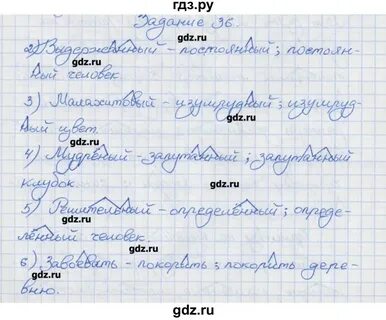 гдз.ру
Задание 36.
2) Выдержанный - постоянный; постоян-
ный человек.
3) Малахитовый - изумрудный; изумруд-
ный цвет.
4) Мудрёный - запутанный; запутанный
клубок.
5) Решительный - определённый; опреде-
лённый человек.
6) Завоевать - покорить; покорить дере-
вню.
гдз.ру
гдз.ру
гдз.ру